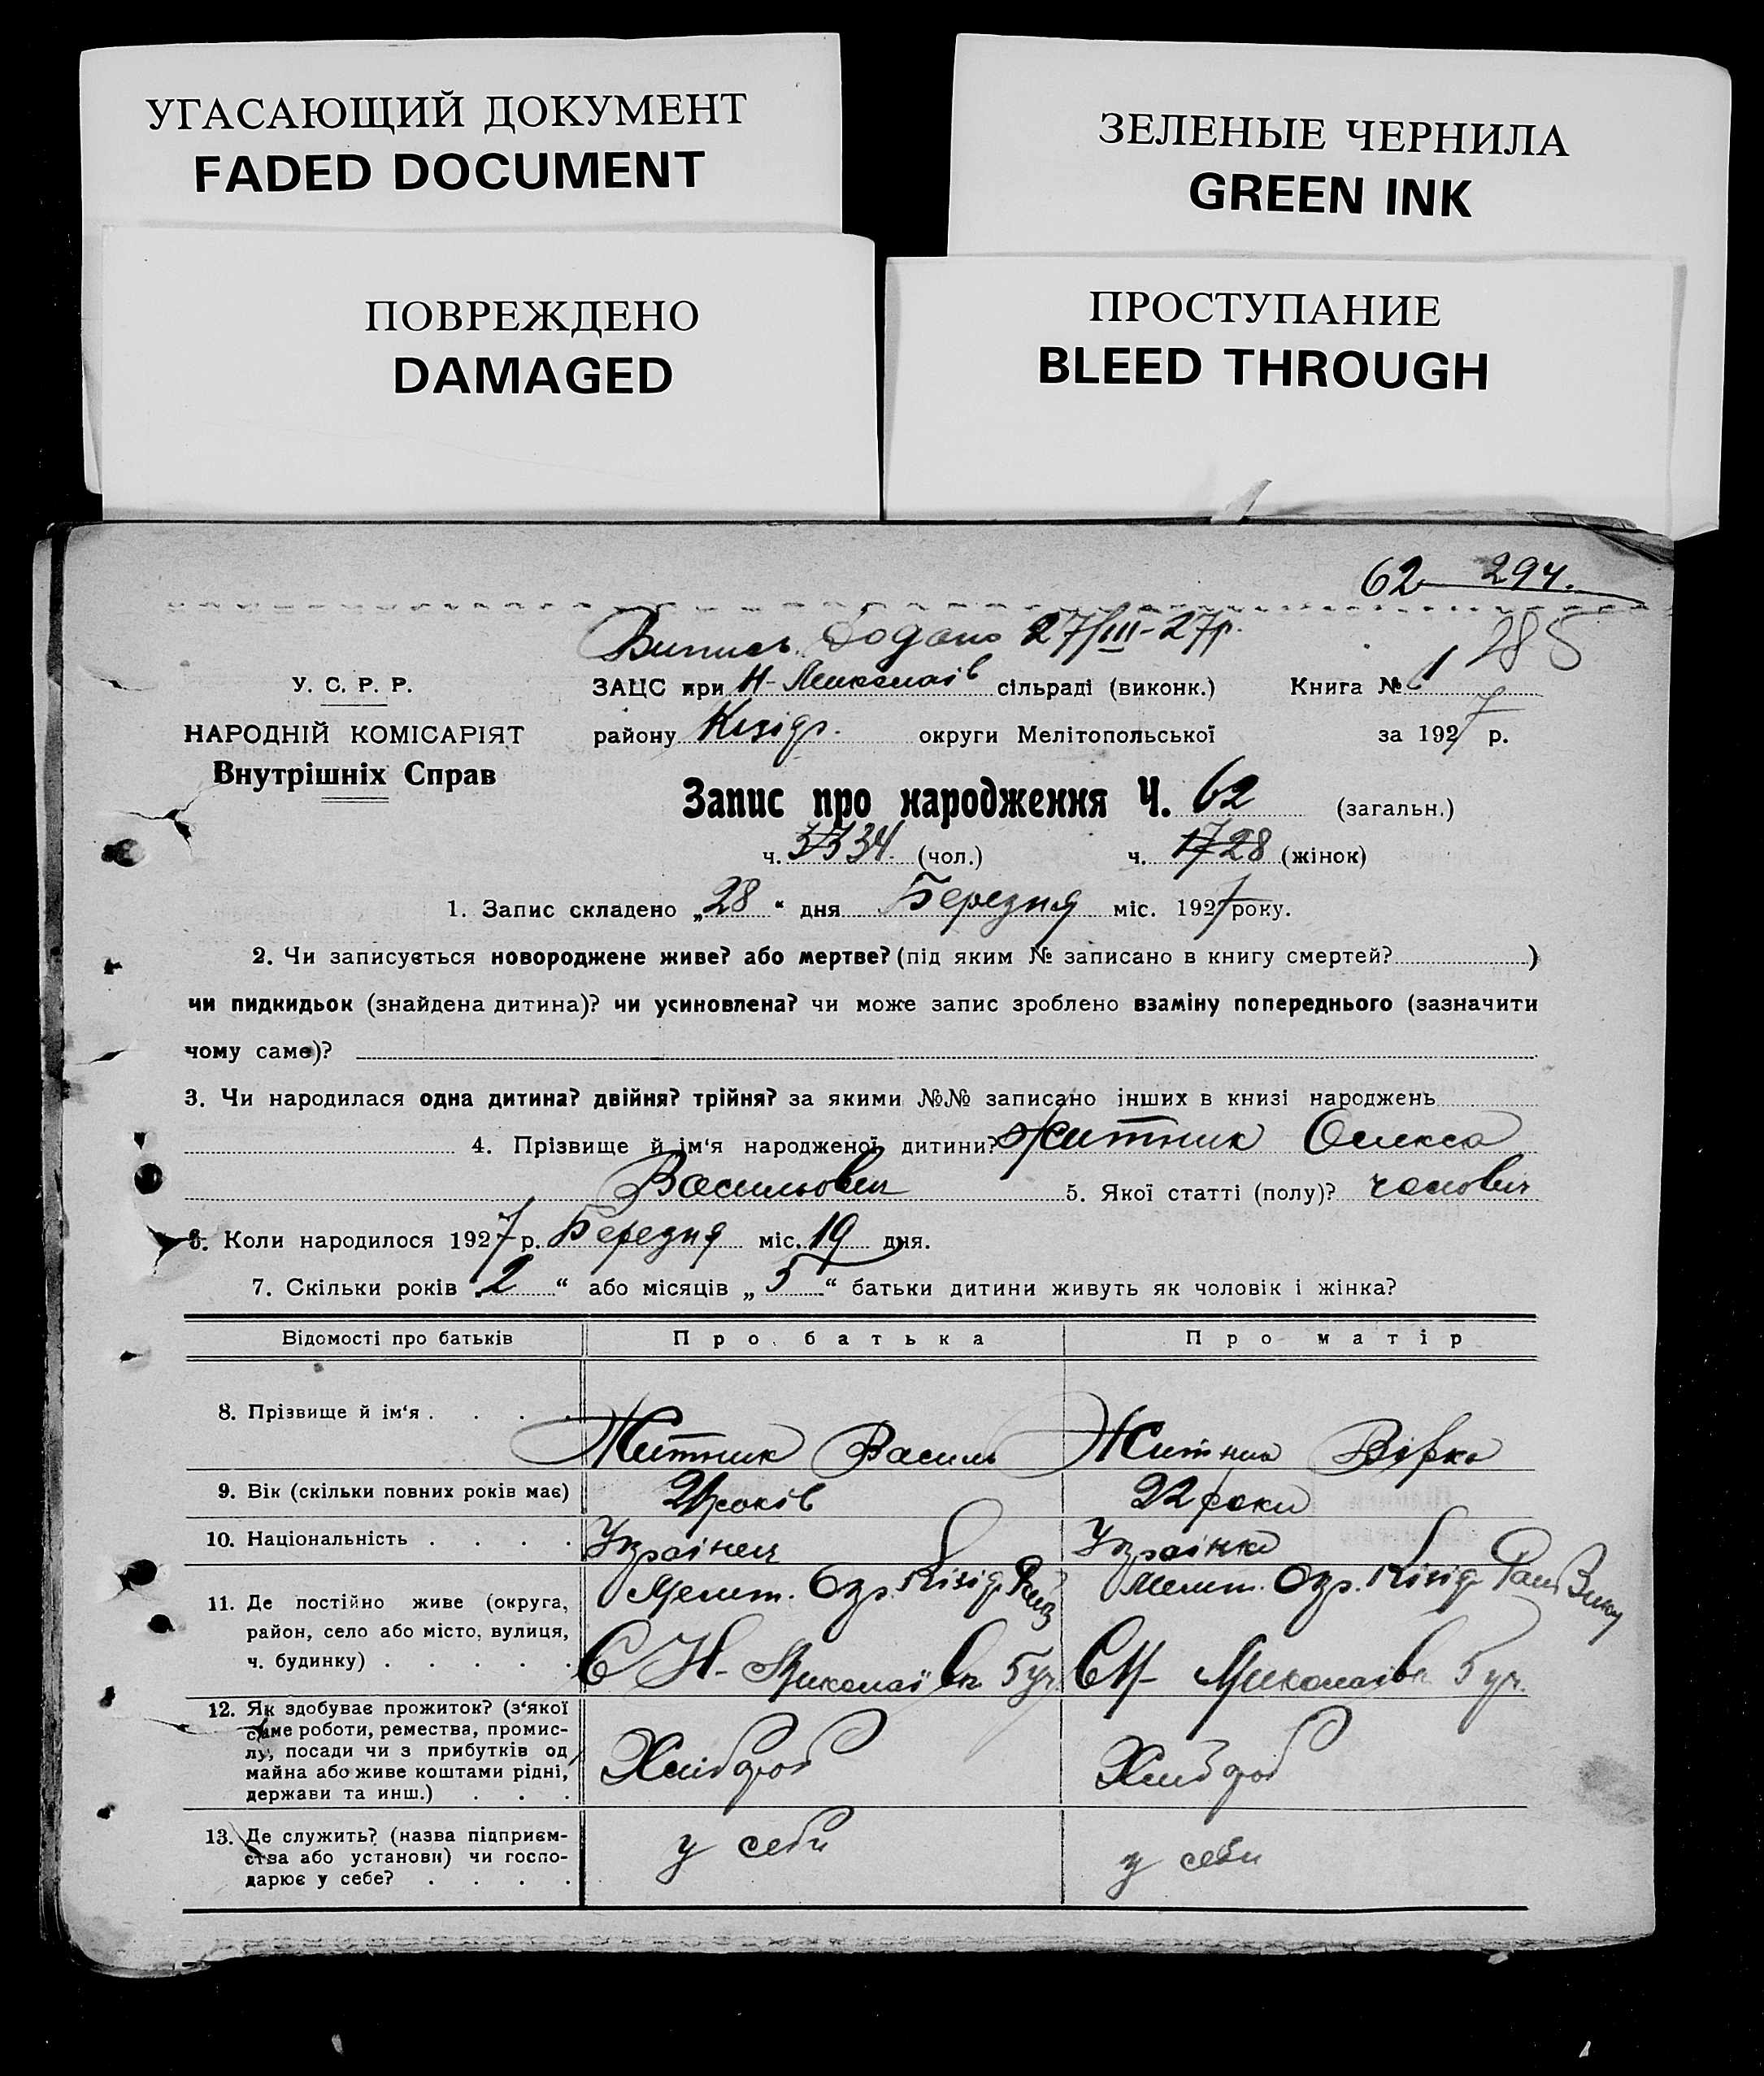 УГАСАЮЩИЙ ДОКУМЕНТ
FADED DOCUMENT
ЗЕЛЕНЫЕ ЧЕРНИЛА
GREEN INK
ПОВРЕЖДЕНО
DAMAGED
ПРОСТУПАНИЕ
BLEED THROUGH
62 294.
Випись додано 27/III-27р.
285
У. С. Р. Р.
ЗАЦС при Н-Миколаїв сільраді (виконк.) Книга № 1
НАРОДНІЙ КОМІСАРІЯТ
району Кізідр. округи Мелітопольської за 1927 р.
Внутрішніх Справ
Запис про народження Ч. 62 (загальн.)
ч. 33 34. (чол.) ч. 17 28 (жінок)
1. Запис складено „28“ дня Березня міс. 1927 року.
2. Чи записується новороджене живе? або мертве? (під яким № записано в книгу смертей? )
чи пидкидьок (знайдена дитина)? чи усиновлена? чи може запис зроблено взаміну попереднього (зазначити
чому саме)?
3. Чи народилася одна дитина? двійня? трійня? за якими №№ записано інших в книзі народжень
4. Прізвище й ім‘я народженої дитини? Житник Олекса
Васильович 5. Якої статті (полу)? чолович
6. Коли народилося 1927 р. Березня міс. 19 дня.
7. Скільки років „2“ або місяців „5“ батьки дитини живуть як чоловік і жінка?
Відомості про батьків Про батька Про матір
8. Прізвище й ім‘я . . . . Житник Василь Житник Вірка
9. Вік (скільки повних років має) років 22 роки
10. Національність . . . . Українець Українка
11. Де постійно живе (округа,
район, село або місто, вулиця,
ч. будинку) . . . . .
Меліт. Окр. Кізідр. Рай
С Н-Миколаївка 5 уч.
Меліт. Окр. Кізідр. Рай
С Н- Миколаївка 5 уч.
12. Як здобуває прожиток? (з‘якої
саме роботи, ремества, промис-
лу, посади чи з прибутків од
майна або живе коштами рідні,
держави та инш.) . . .
Хлібороб Хлібороб
13. Де служить? (назва підприєм-
ства або установи) чи госпо-
дарює у себе? . . . .
у себи у себи